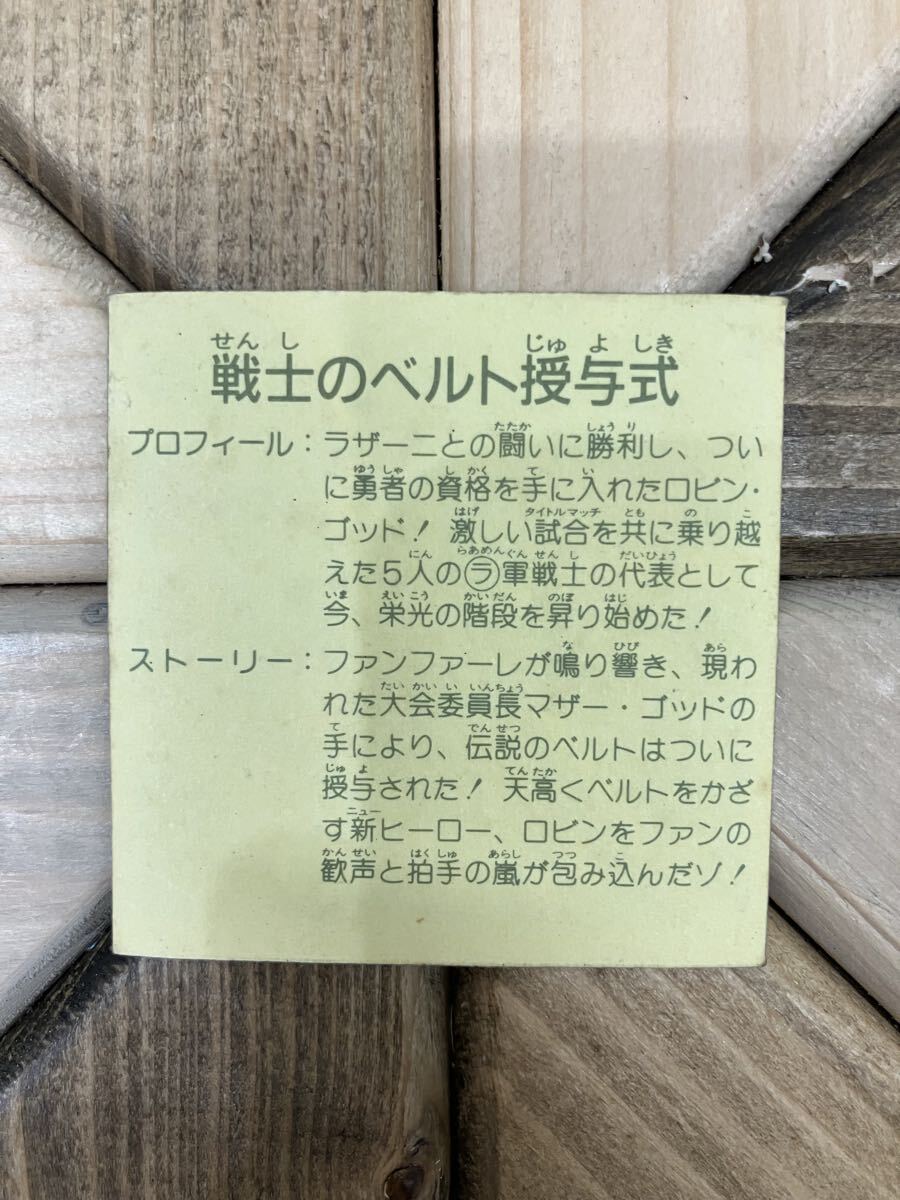 戦士のベルト授与式
プロフィール：ラザーニとの闘いに勝利し、つい
に勇者の資格を手に入れたロビン・
ゴッド！ 激しい試合を共に乗り越
えた5人の㋶軍戦士の代表として
今、栄光の階段を昇り始めた！
ストーリー：ファンファーレが鳴り響き、現わ
れた大会委員長マザー・ゴッドの
手により、伝説のベルトはついに
授与された！ 天高くベルトをかざ
す新ヒーロー、ロビンをファンの
歓声と拍手の嵐が包み込んだゾ！